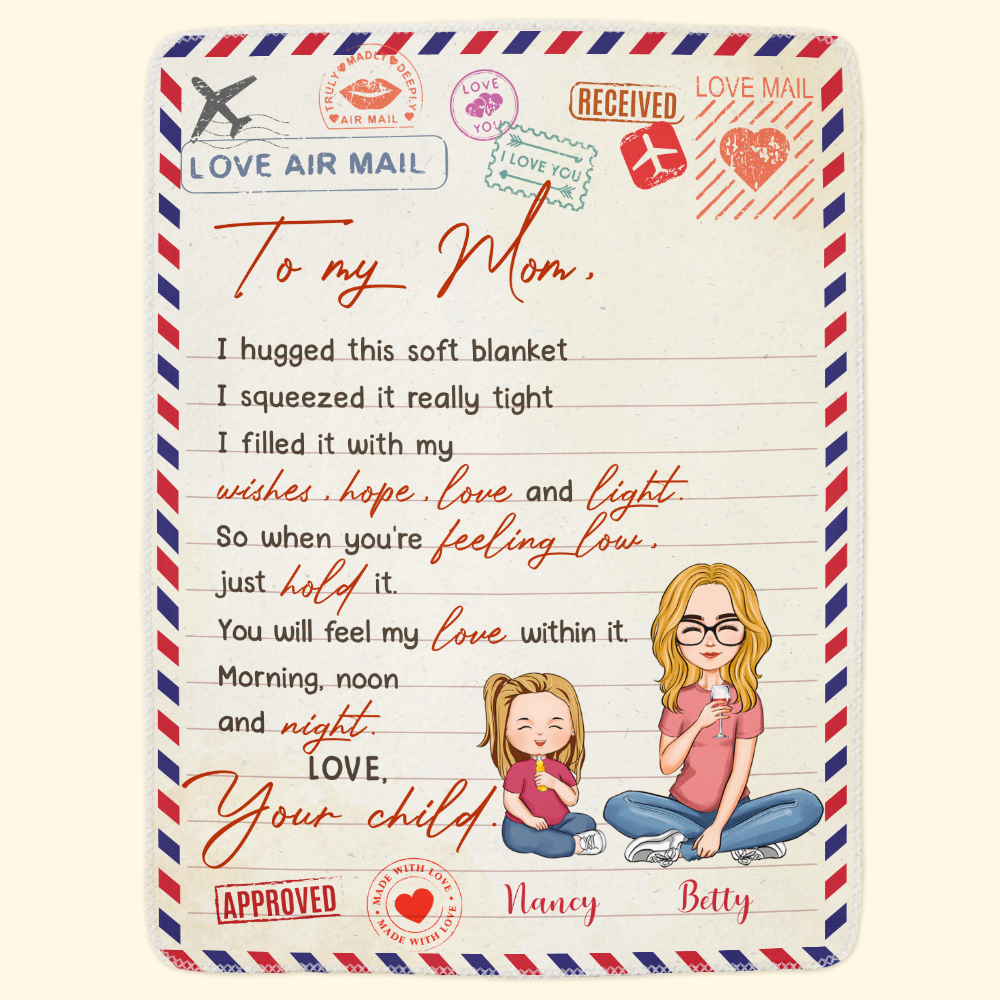 TRULY MADLY DEEPLY
AIR MAIL
LOVE
YOU
RECEIVED
LOVE MAIL
LOVE AIR MAIL
I LOVE YOU
To my Mom,
I hugged this soft blanket
I squeezed it really tight
I filled it with my
wishes, hope, love and light.
So when you're feeling low,
just hold it.
You will feel my love within it.
Morning, noon
and night.
LOVE,
Your child.
APPROVED
MADE WITH LOVE
MADE WITH LOVE
Nancy
Betty